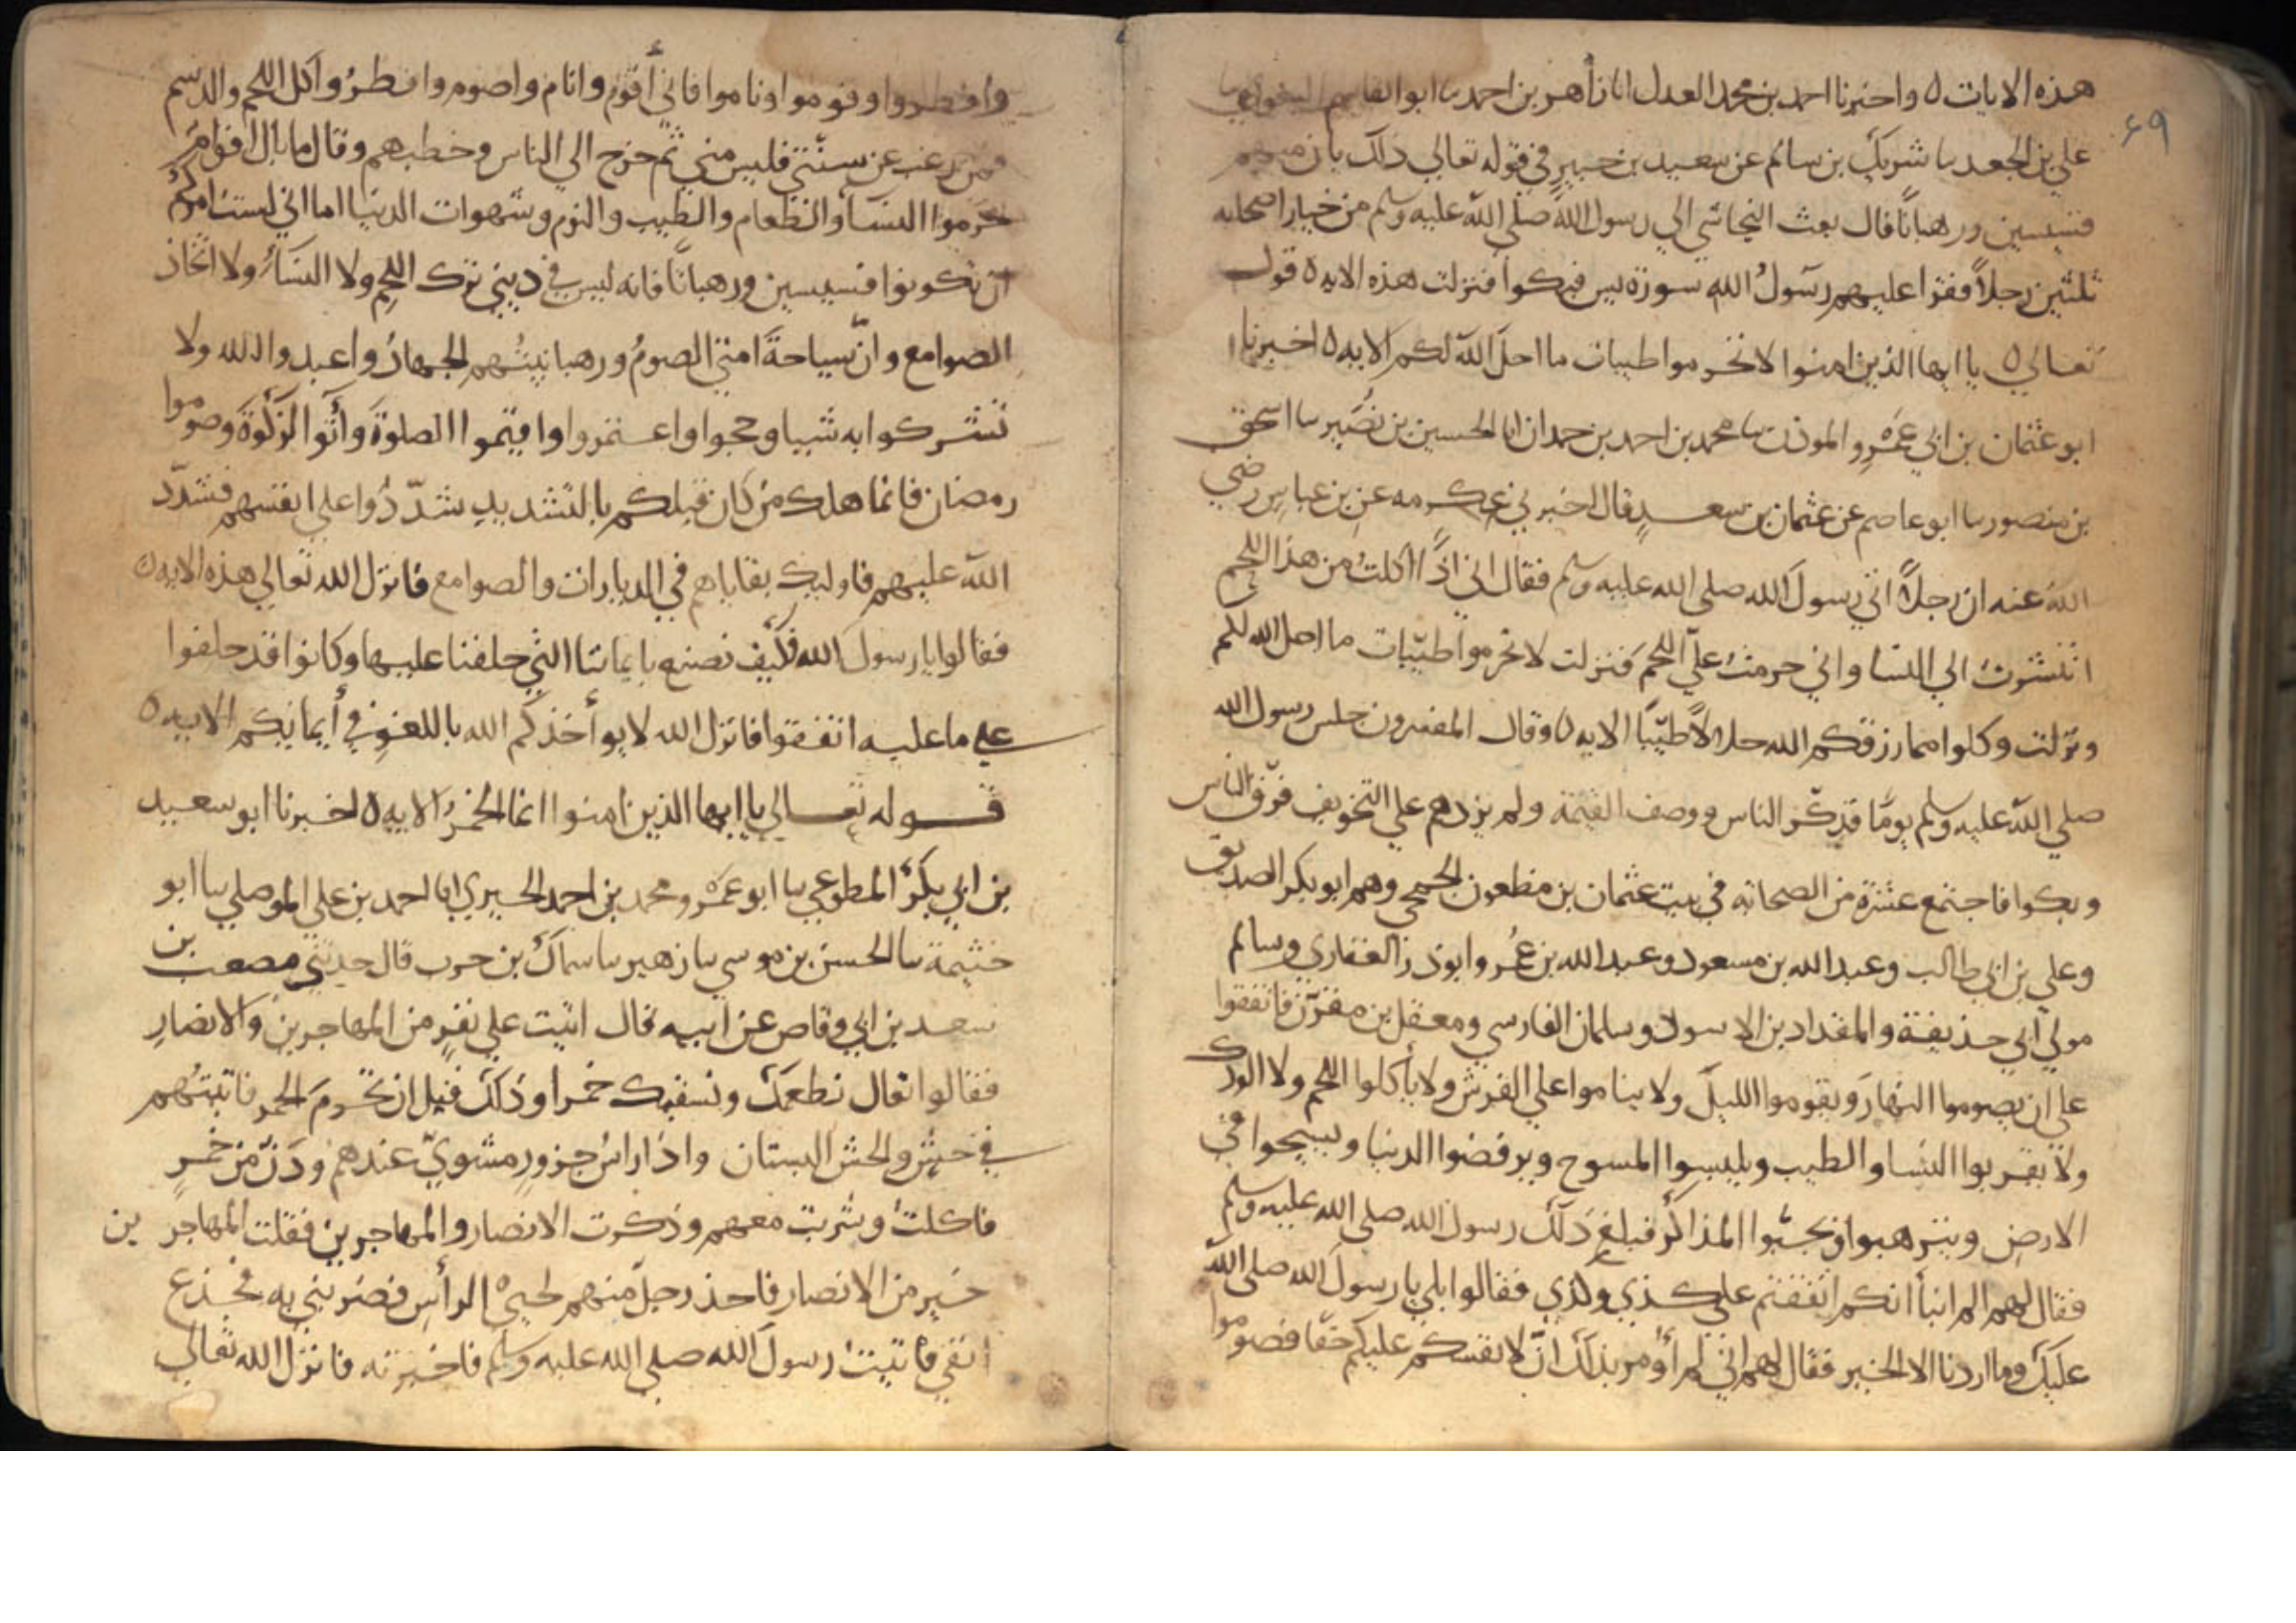 هذه الايات ٥ واخبرنا احمد بن محمد العدل انا زاهر بن احمد ىا ابوالقاسم البغوي ىا
۶۹
علي بن الجعد ىا شريك بن سالم عن سعيد بن جبير في قوله تعالي ذلك بان منهم
قسيسين ورهبانا قال بعث النجاشي الي رسول الله صلي الله عليه وسلم من خيار اصحابه
ثلثين رجلاً فقرا عليهم رسولُ الله سورة يس فبكوا فنزلت هذه الايه ٥ قوله
تعالي ٥ يا ايها الذين امنوا لا تحرموا طيبات ما احل الله لكم الايه ٥ اخبرنا
ابو عثمان بن ابي عمرو الموذن ىا محمد بن احمد بن حمدان انا الحسين بن نُصَير ىا اسحق
بن منصور ىا ابو عاصم عن عثمان بن سعدٍ قال اخبرني عكرمه عن بن عباس رضي
الله عنه ان رجلاً اتي رسولَ الله صلي الله عليه وسلم فقال اني اذا اكلتُ من هذا اللحم
انتشرت الي النسا واني حرمتُ عليّ اللحم فنزلت لا تحرموا طيّبات ما احل الله لكم
ونزلت وكلوا مما رزقكم الله حلالاً طيّبًا الايه ٥ وقال المفسرون جلس رسول الله
صلي الله عليه وسلم يومًا فذكّر الناس ووصف القيمة ولم يزدهم علي التخويف فرقّ الناس
وبكوا فاجتمع عشرة من الصحابه في بيت عثمان بن مظعون الجمحي وهم ابو بكر الصديق
وعلي بن ابي طالب وعبد الله بن مسعود وعبد الله بن عُمر وابو ذر الغفاري وسالم
مولي ابي حذيفة والمقداد بن الاسود وسلمان الفارسي ومعقل بن مقرّن فاتفقوا
علي ان يصوموا النهارَ ويقوموا الليلَ ولا يناموا علي الفرش ولا يأكلوا اللحم ولا الودك
ولا يقربوا النسا والطيب ويلبسوا المسوح ويرفضوا الدنيا ويسيحوا في
الارض ويترهبوا ويجبّوا المذاكر فبلغ ذلك رسول الله صلي الله عليه وسلم
فقال لهم الم انبأ انكم اتفقتم علي كذي وكذي فقالوا بلي يا رسول الله صلي الله
عليك وما اردنا الا الخير فقال لهم اني لم أُومر بذلك انّ لانفسكم عليكم حقّا فصوموا
وافطروا وقوموا وناموا فاني أقوم وانام واصوم وافطرُ واكل اللحم والدسم
فمن رغب عن سنّتي فليس مني ثم خرج الي الناس وخطبهم وقال ما بال اقوام
حرّموا النسآ والطعام والطيب والنوم وشهوات الدنيا اما اني لست امركم
ان تكونوا قسيسين ورهبانًا فانه ليس في ديني ترك اللحم ولا النسآءِ ولا اتخاذ
الصوامع وانّ سياحةَ امتي الصومُ ورهبانيتُهم الجهادُ واعبدوا الله ولا
تشركوا به شييا وحجوا واعتمروا واقيموا الصلوةَ وآتُوا الزكوةَ وصوموا
رمضان فانما هلك من كان قبلكم بالتشديدِ شدّدُوا علي انفسهم فشدّد
الله عليهم فاوليك بقاياهم في الديارات والصوامع فانزل الله تعالي هذه الايه ٥
فقالوا يا رسولَ الله فكيف نصنع بايماننا التي حلفنا عليها وكانوا قد حلفوا
علي ما عليه اتفقوا فانزل الله لا يوأخذكم الله باللغو في أيمانكم الايه ٥
قوله تعالي يا ايها الذين امنوا انما الخمرُ الايه ٥ اخبرنا ابو سعيد
بن ابي بكر المطوعي ىا ابو عمرو محمد بن احمد الحيري انا احمد بن علي الموصلي ىا ابو
خثيمة ىا الحسن بن موسي ىا زهير ىا سماك بن حرب قال حدثني مصعب بن
سعد بن ابي وقاص عن ابيه قال اتيت علي نفرٍ من المهاجرين والانصارِ
فقالوا تعال نطعمك ونسقيك خمرا وذلك قبل ان تحرمَ الخمر فاتيتُهم
في حشٍ والحش البستان واذا راسُ جزورٍ مشويّ عندهم ودَنّ من خمرٍ
فاكلتُ وشربت معهم وذكرت الانصار والمهاجرين فقلت المهاجرين
خير من الانصار فاخذ رجلٌ منهم لحيي الرأسِ فضربني به فجذع
انفي فاتيتُ رسولَ الله صلي الله عليه وسلم فاخبرته فانزل الله تعالي